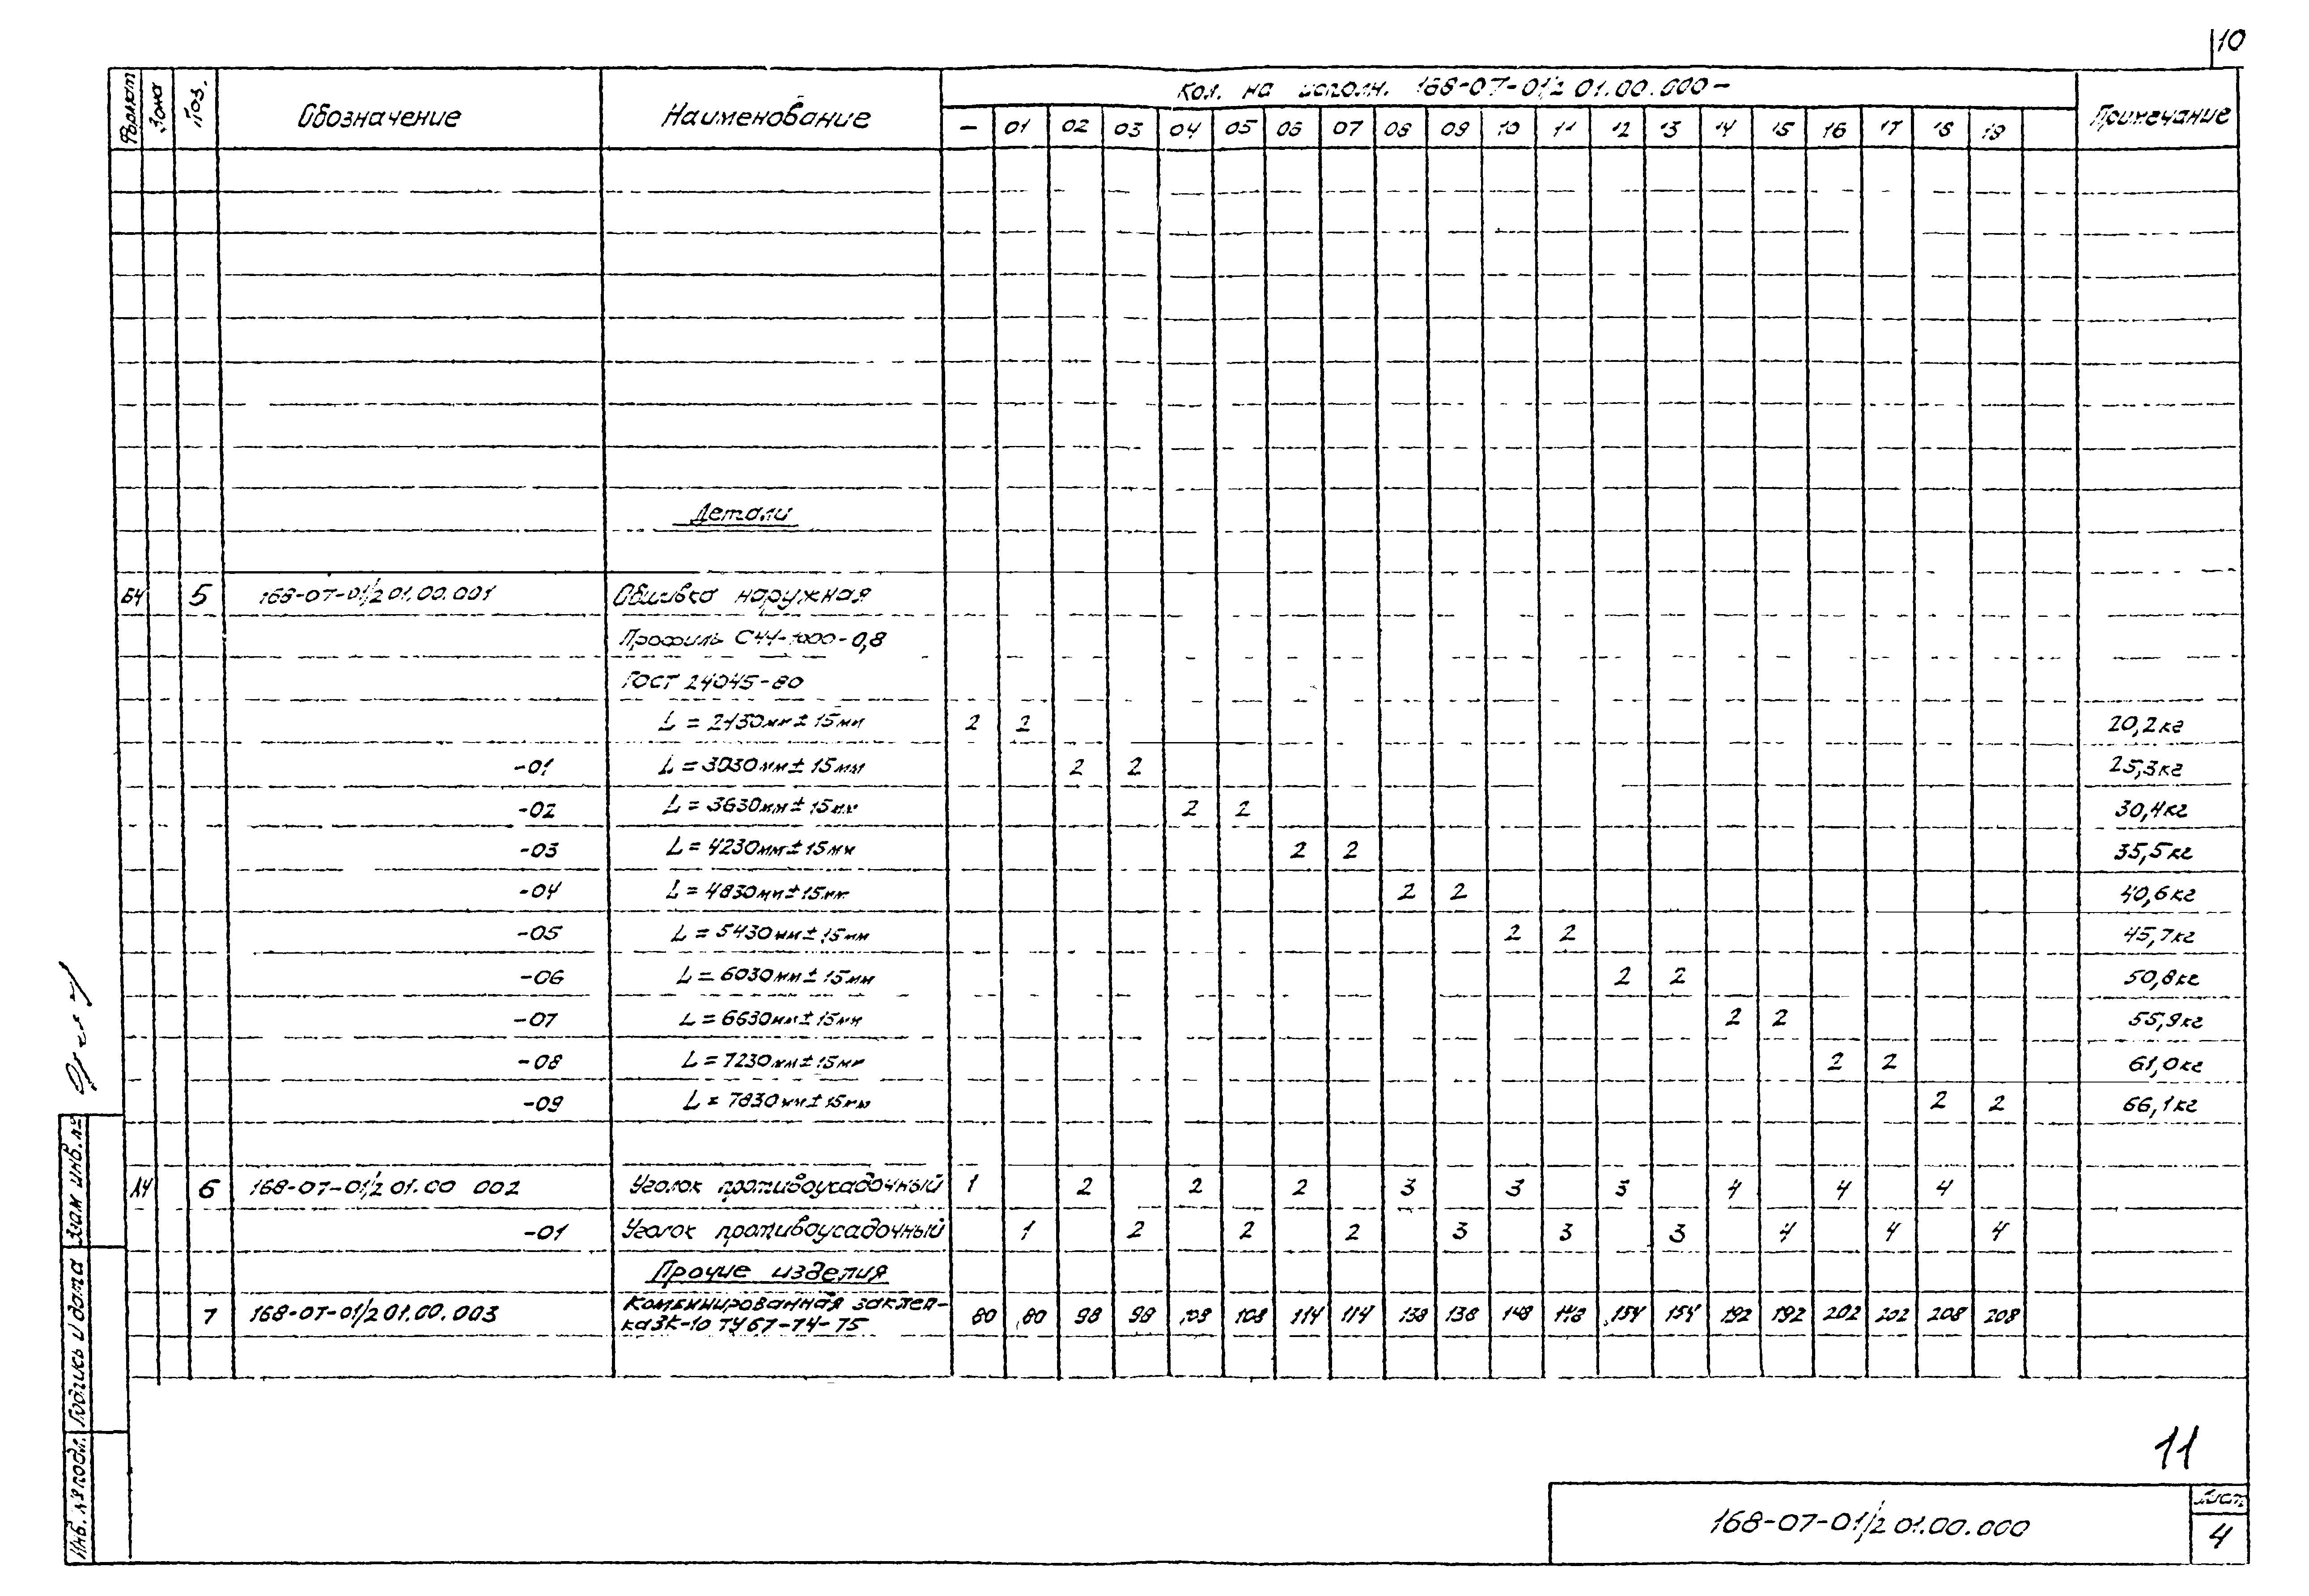 10
Формат Зона Поз. Обозначение Наименование Кол. на исполн. 168-07-01/2 01.00.000- Примечание
- 01 02 03 04 05 06 07 08 09 10 11 12 13 14 15 16 17 18 19
Детали
БЧ 5 168-07-01/2 01.00.001 Обшивка наружная
Профиль С44-1000-0,8
ГОСТ 24045-80
L = 2430мм ± 15мм 2 2 20,2кг
-01 L = 3030мм ± 15мм 2 2 25,3кг
-02 L = 3630мм ± 15мм 2 2 30,4кг
-03 L = 4230мм ± 15мм 2 2 35,5кг
-04 L = 4830мм ± 15мм 2 2 40,6кг
-05 L = 5430мм ± 15мм 2 2 45,7кг
-06 L = 6030мм ± 15мм 2 2 50,8кг
-07 L = 6630мм ± 15мм 2 2 55,9кг
-08 L = 7230мм ± 15мм 2 2 61,0кг
-09 L = 7830мм ± 15мм 2 2 66,1кг
А4 6 168-07-01/2 01.00 002 Уголок противоусадочный 1 2 2 2 3 3 3 4 4 4
-01 Уголок противоусадочный 1 2 2 2 3 3 3 4 4 4
Прочие изделия
7 168-07-01/2 01.00.003 Комбинированная заклеп-
ка ЗК-10 ТУ 67-74-75 80 80 98 98 108 108 114 114 138 138 148 148 154 154 192 192 202 202 208 208
Взам инв.№
Подпись и дата
Инв. № подл.
11
168-07-01/2 01.00.000
Лист
4